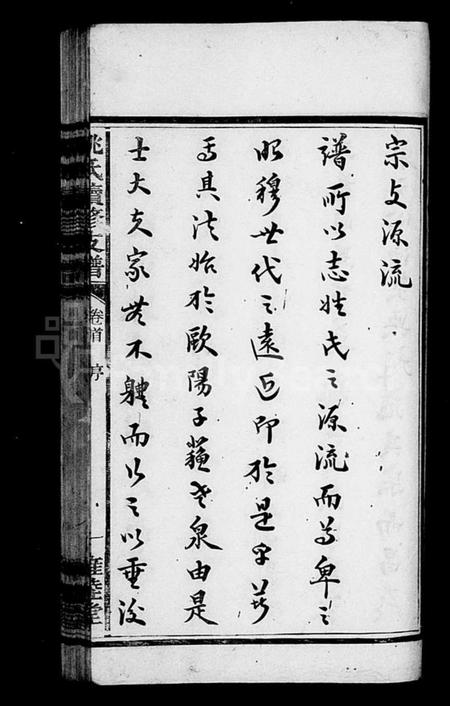 宗支源流
譜所以志姓氏之源流而尊卑之
昭穆世代之遠近即於是乎著
焉其法始於歐陽子蘇老泉由是
士大夫家無不體而行之以垂後
姚氏續修支譜
卷首 序
一 睦堂